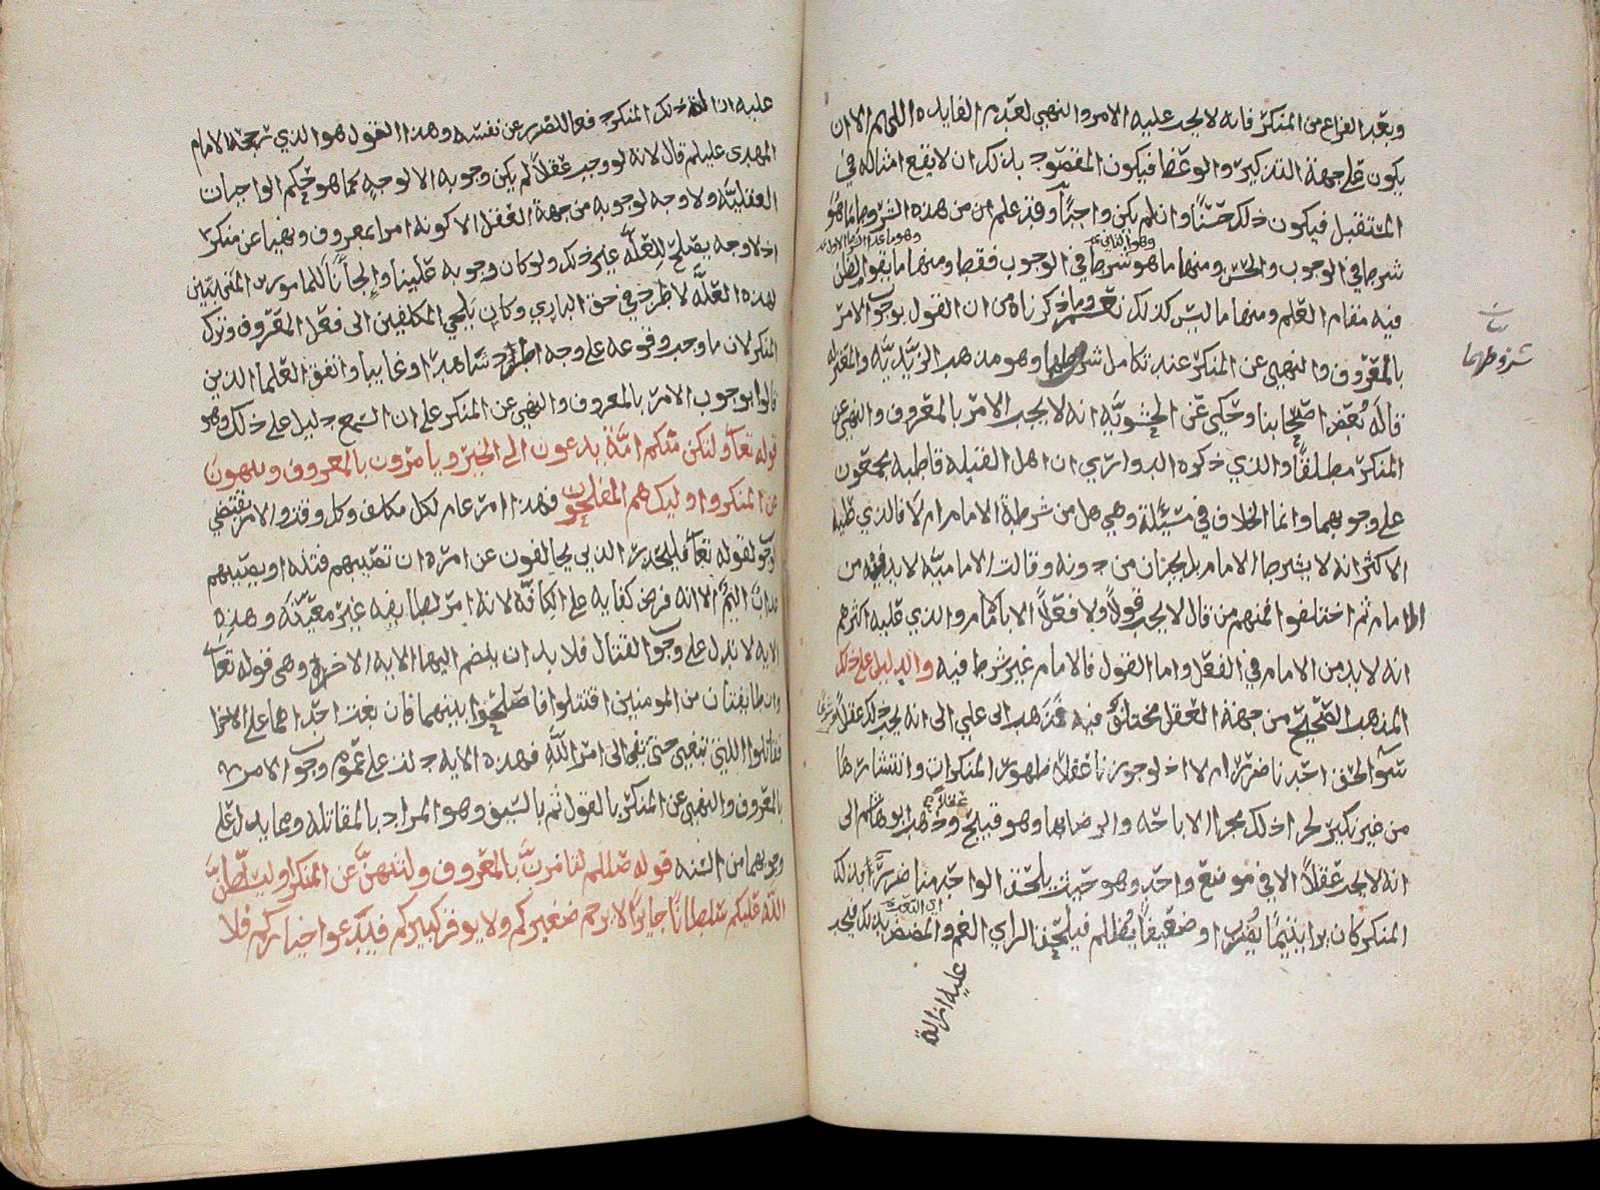 وبعد الفراغ من المنكر فانه لا يجب عليه الامر والنهي لعدم الفايده اللهم الا ان
يكون على جهة التذكير والوعظ فيكون المقصود بذلك ان لا يقع امثاله في
المستقبل فيكون ذلك حسنا وان لم يكن واجبا وقد علم ان من هذه الشروط ما هو
شرط في الوجوب والحسن ومنها ما هو شرط في الوجوب فقط ومنها ما يقوم الظن
وهو الثاني
فيه مقام العلم ومنها ما ليس كذلك نعم وما ذكرناه من ان القول بوجوب الامر
بالمعروف والنهي عن المنكر عند تكامل شروطهما وهو مذهب الزيديه والمعتزله
شروطهما
قاله بعض اصحابنا وحكي عن الحشويه انه لا يجب الامر بالمعروف والنهي عن
المنكر مطلقا والذي ذكره الدواري ان اهل القبله قاطبه مجمعون
على وجوبهما وانما الخلاف في مسئلة وهي هل من شرطه الامام ام لا فالذي عليه
الاكثر انه لا يشرط الامام بل يجبان من دونه وقالت الاماميه لا بد فيه من
الامام ثم اختلفوا فمنهم من قال لا يجب قولا ولا فعلا الا بالامام والذي عليه اكثرهم
انه لا بد من الامام في الفعل واما القول فالامام غير شرط فيه والدليل على ذلك
المذهب الصحيح من جهة العقل مختلف فيه فذهب ابو علي الى انه يجب ذلك عقلا
سوا لحق احدنا ضرر ام لا اذ لو جوزنا عقلا ظهور المنكرات وانتشارها
من غير نكير لجرا ذلك مجرا الاباحه والرضا بها وهو قبيح وذهب ابو هاشم الى
عقلا
انه لا يجب عقلا الا في موضع واحد وهو حيث يلحق الواحد منا ضرر بذلك
المنكر كان يرا يتيما يضرب او ضعيفا يظلم فيلحق الراي الغم والمضض بذلك فيجب
عليه ازالة
عليه ازالة ذلك المنكر دفعا للضرر عن نفسه وهذا القول هو الذي رجحه الامام
المهدى عليلم قال لانه لو وجب عقلا لم يكن وجوبه الا لوجه كما هو حكم الواجبات
العقليه ولا وجه لوجوبه من جهة العقل الا كونه امرا بمعروف ونهيا عن منكر
اذ لا وجه يصلح للعله غير ذلك ولو كان وجوبه علينا
لهذه العله لاطرد في حق الباري وكان يلجي المكلفين الى فعل المعروف وترك
المنكر لان ما وجب وقوعه على وجه اطرد شاهدا وغايبا واتفق العلما الذين
قالوا بوجوب الامر بالمعروف والنهي عن المنكر على ان السمع دليل على ذلك وهو
قوله تعا ولتكن منكم امة يدعون الى الخير ويامرون بالمعروف وينهون
عن المنكر واوليك هم المفلحون فهذا امر عام لكل مكلف وكل وقت والامر يقتضي
الوجوب لقوله تعا فليحذر الذين يخالفون عن امره ان تصيبهم فتنه او يصيبهم
عذاب اليم الا انه فرض كفايه على الكافه لانه امر لطايفه غير معينه وهذه
الايه لا تدل على وجوب القتال فلا بد ان يضم اليها الايه الاخرى وهي قوله تعا
وان طايفتان من المومنين اقتتلوا فاصلحوا بينهما فان بغت احداهما على الاخرا
فقاتلوا التي تبغي حتى تفي الى امر الله فهذه الايه دلت على عموم وجوب الامر
بالمعروف والنهي عن المنكر بالقول ثم بالسيف وهو المراد بالمقاتله ومما يدل على
وجوبهما من السنه قوله صللم لتامرن بالمعروف ولتنهن عن المنكر او ليسلطن
الله عليكم سلطانا جايرا لا يرحم صغيركم ولا يوقر كبيركم فيدعوا خياركم فلا